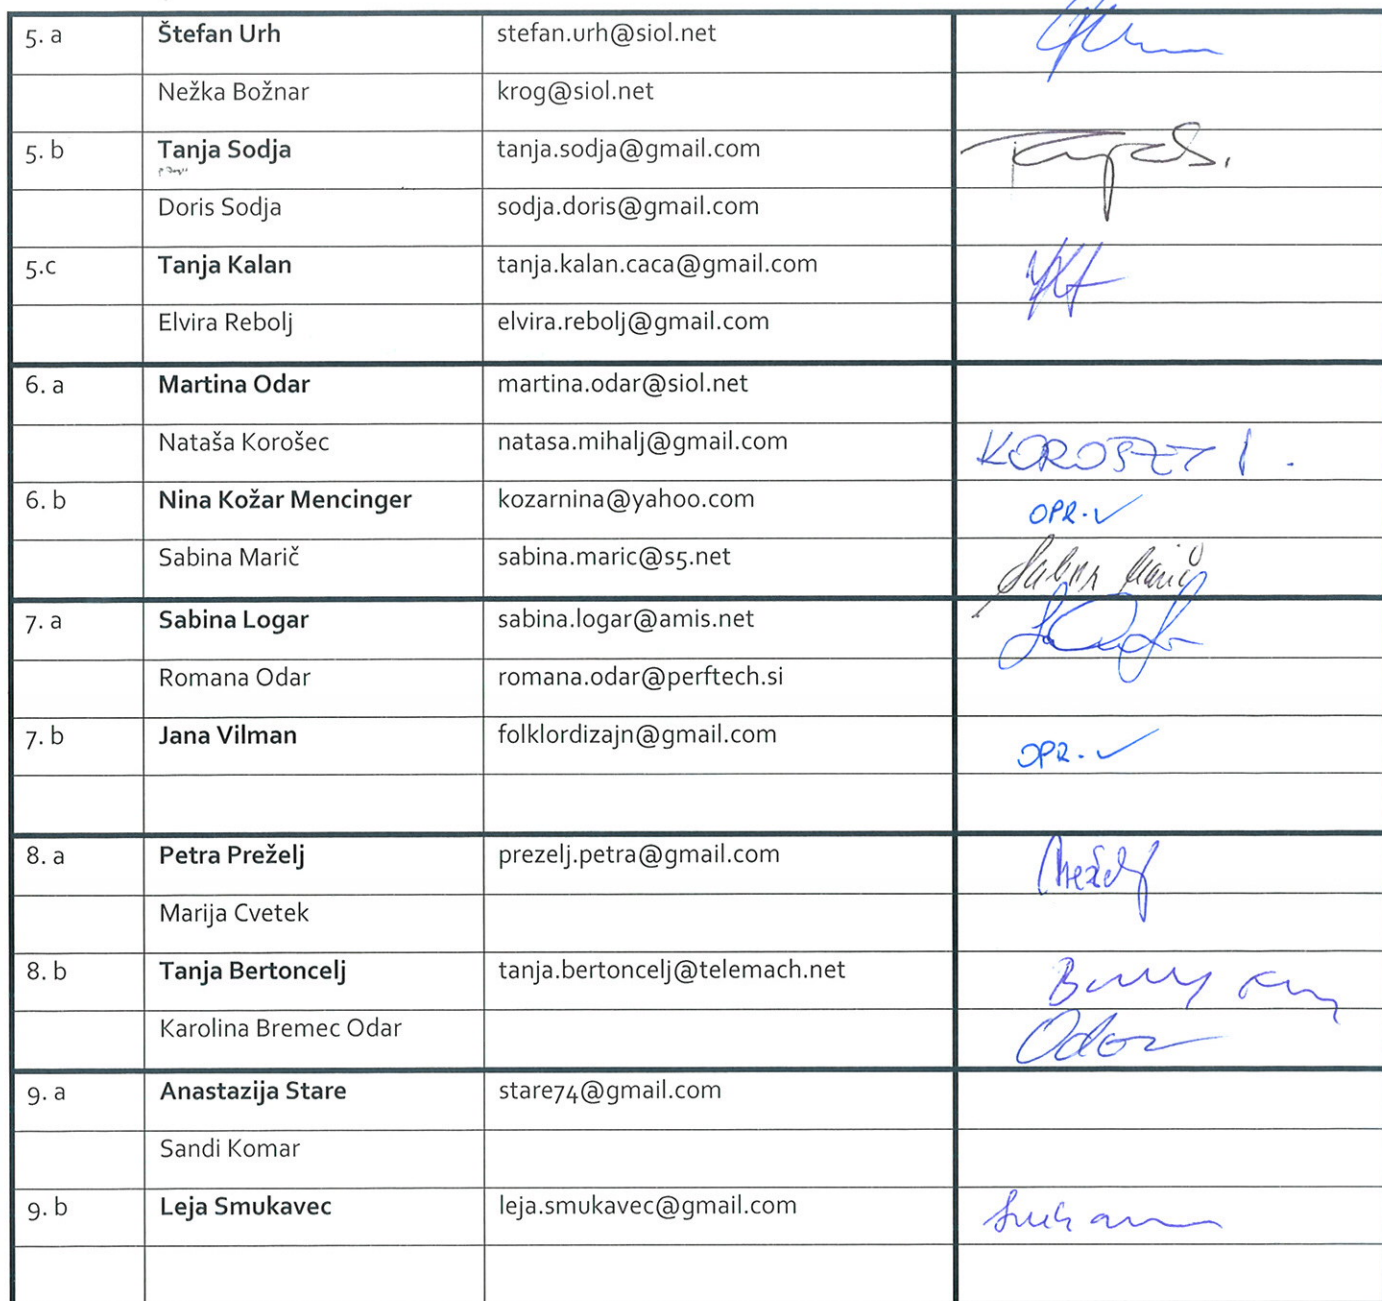 5. a Štefan Urh stefan.urh@siol.net
Nežka Božnar krog@siol.net
5. b Tanja Sodja tanja.sodja@gmail.com
Doris Sodja sodja.doris@gmail.com
5.c Tanja Kalan tanja.kalan.caca@gmail.com
Elvira Rebolj elvira.rebolj@gmail.com
6. a Martina Odar martina.odar@siol.net
Nataša Korošec natasa.mihalj@gmail.com
6. b Nina Kožar Mencinger kozarnina@yahoo.com OPR. ✓
Sabina Marič sabina.maric@s5.net Sabina Marič
7. a Sabina Logar sabina.logar@amis.net
Romana Odar romana.odar@perftech.si
7. b Jana Vilman folklordizajn@gmail.com OPR. ✓
8. a Petra Preželj prezelj.petra@gmail.com
Marija Cvetek
8. b Tanja Bertoncelj tanja.bertoncelj@telemach.net
Karolina Bremec Odar Odar
9. a Anastazija Stare stare74@gmail.com
Sandi Komar
9. b Leja Smukavec leja.smukavec@gmail.com